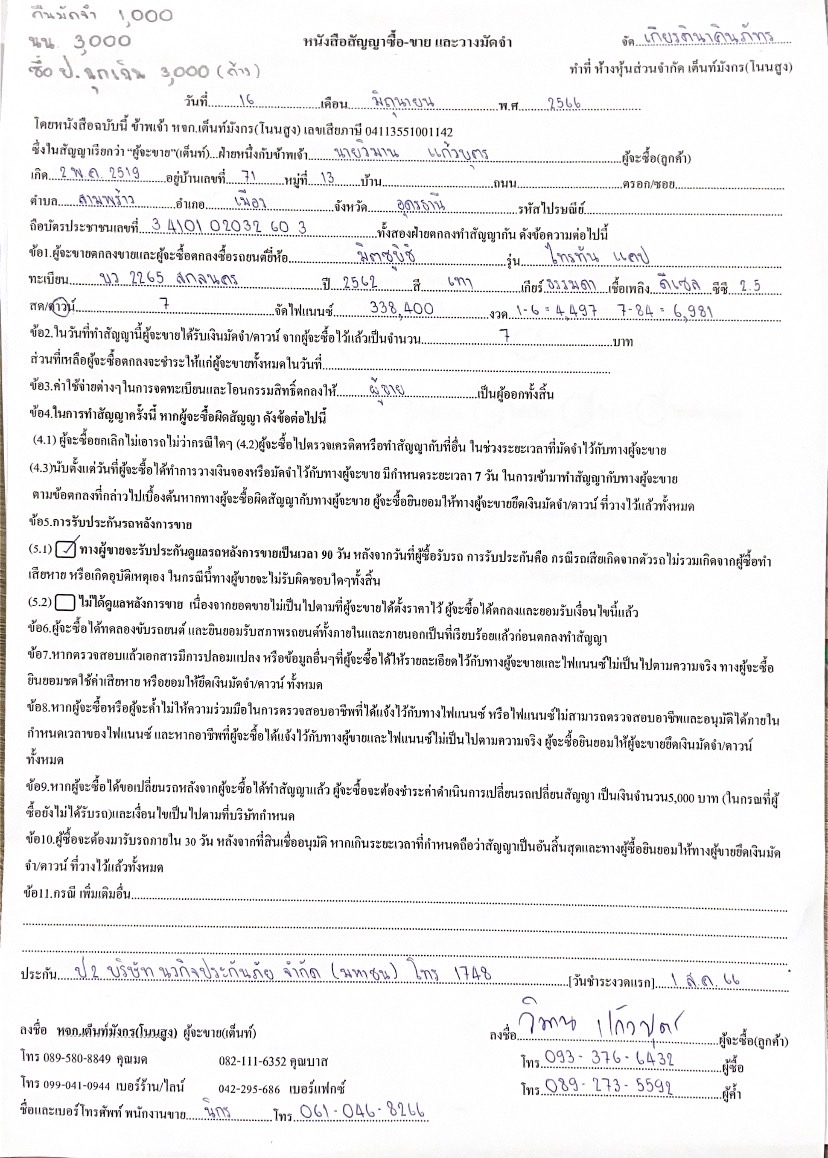 คืนมัดจำ 1,000
นน 3,000
ซื้อ ป.ฉุกเฉิน 3,000 (ค้าง)
หนังสือสัญญาซื้อ-ขาย และวางมัดจำ
จัด เกียรตินาคินภัทร
ทำที่ ห้างหุ้นส่วนจำกัด เต็นท์มังกร(โนนสูง)
วันที่ 16 เดือน มิถุนายน พ.ศ 2566
โดยหนังสือฉบับนี้ ข้าพเจ้า หจก.เต็นท์มังกร(โนนสูง) เลขเสียภาษี 04113551001142
ซึ่งในสัญญาเรียกว่า "ผู้จะขาย"(เต็นท์)...ฝ่ายหนึ่งกับข้าพเจ้า นายวิมาน แก้วบุตร ผู้จะซื้อ(ลูกค้า)
เกิด 2 พ.ค. 2519 อยู่บ้านเลขที่ 71 หมู่ที่ 13 บ้าน ถนน ตรอก/ซอย
ตำบล สามพร้าว อำเภอ เมือง จังหวัด อุดรธานี รหัสไปรษณีย์
ถือบัตรประชาชนเลขที่ 3 4101 02032 60 3 ทั้งสองฝ่ายตกลงทำสัญญากัน ดังข้อความต่อไปนี้
ข้อ1.ผู้จะขายตกลงขายและผู้จะซื้อตกลงซื้อรถยนต์ยี่ห้อ มิตซูบิชิ รุ่น ไทรทัน แคป
ทะเบียน บว 2265 สกลนคร ปี 2562 สี เทา เกียร์ ธรรมดา เชื้อเพลิง ดีเซล ซีซี 2.5
สด/ดาวน์ 7 จัดไฟแนนซ์ 338,400 งวด 1-6 = 4,497 7-84 = 6,981
ข้อ2.ในวันที่ทำสัญญานี้ผู้จะขายได้รับเงินมัดจำ/ดาวน์ จากผู้จะซื้อไว้แล้วเป็นจำนวน 7 บาท
ส่วนที่เหลือผู้จะซื้อตกลงจะชำระให้แก่ผู้จะขายทั้งหมดในวันที่
ข้อ3.ค่าใช้จ่ายต่างๆในการจดทะเบียนและโอนกรรมสิทธิ์ตกลงให้ ผู้ขาย เป็นผู้ออกทั้งสิ้น
ข้อ4.ในการทำสัญญาครั้งนี้ หากผู้จะซื้อผิดสัญญา ดังข้อต่อไปนี้
(4.1) ผู้จะซื้อยกเลิกไม่เอารถไม่ว่ากรณีใดๆ (4.2)ผู้จะซื้อไปตรวจเครดิตหรือทำสัญญากับที่อื่น ในช่วงระยะเวลาที่มัดจำไว้กับทางผู้จะขาย
(4.3)นับตั้งแต่วันที่ผู้จะซื้อได้ทำการวางเงินจองหรือมัดจำไว้กับทางผู้จะขาย มีกำหนดระยะเวลา 7 วัน ในการเข้ามาทำสัญญากับทางผู้จะขาย
ตามข้อตกลงที่กล่าวไปเบื้องต้นหากทางผู้จะซื้อผิดสัญญากับทางผู้จะขาย ผู้จะซื้อยินยอมให้ทางผู้จะขายยึดเงินมัดจำ/ดาวน์ ที่วางไว้แล้วทั้งหมด
ข้อ5.การรับประกันรถหลังการขาย
(5.1) ทางผู้ขายจะรับประกันดูแลรถหลังการขายเป็นเวลา 90 วัน หลังจากวันที่ผู้ซื้อรับรถ การรับประกันคือ กรณีรถเสียเกิดจากตัวรถไม่รวมเกิดจากผู้ซื้อทำ
เสียหาย หรือเกิดอุบัติเหตุเอง ในกรณีนี้ทางผู้ขายจะไม่รับผิดชอบใดๆทั้งสิ้น
(5.2) ไม่ได้ดูแลหลังการขาย เนื่องจากยอดขายไม่เป็นไปตามที่ผู้จะขายได้ตั้งราคาไว้ ผู้จะซื้อได้ตกลงและยอมรับเงื่อนไขนี้แล้ว
ข้อ6.ผู้จะซื้อได้ทดลองขับรถยนต์ และยินยอมรับสภาพรถยนต์ทั้งภายในและภายนอกเป็นที่เรียบร้อยแล้วก่อนตกลงทำสัญญา
ข้อ7.หากตรวจสอบแล้วเอกสารมีการปลอมแปลง หรือข้อมูลอื่นๆที่ผู้จะซื้อได้ให้รายละเอียดไว้กับทางผู้จะขายและไฟแนนซ์ไม่เป็นไปตามความจริง ทางผู้จะซื้อ
ยินยอมชดใช้ค่าเสียหาย หรือยอมให้ยึดเงินมัดจำ/ดาวน์ ทั้งหมด
ข้อ8.หากผู้จะซื้อหรือผู้จะค้ำไม่ให้ความร่วมมือในการตรวจสอบอาชีพที่ได้แจ้งไว้กับทางไฟแนนซ์ หรือไฟแนนซ์ไม่สามารถตรวจสอบอาชีพและอนุมัติได้ภายใน
กำหนดเวลาของไฟแนนซ์ และหากอาชีพที่ผู้จะซื้อได้แจ้งไว้กับทางผู้ขายและไฟแนนซ์ไม่เป็นไปตามความจริง ผู้จะซื้อยินยอมให้ผู้จะขายยึดเงินมัดจำ/ดาวน์
ทั้งหมด
ข้อ9.หากผู้จะซื้อได้ขอเปลี่ยนรถหลังจากผู้จะซื้อได้ทำสัญญาแล้ว ผู้จะซื้อจะต้องชำระค่าดำเนินการเปลี่ยนรถเปลี่ยนสัญญา เป็นเงินจำนวน5,000 บาท (ในกรณที่ผู้
ซื้อยังไม่ได้รับรถ)และเงื่อนไขเป็นไปตามที่บริษัทกำหนด
ข้อ10.ผู้ซื้อจะต้องมารับรถภายใน 30 วัน หลังจากที่สินเชื่ออนุมัติ หากเกินระยะเวลาที่กำหนดถือว่าสัญญาเป็นอันสิ้นสุดและทางผู้ซื้อยินยอมให้ทางผู้ขายยึดเงินมัด
จำ/ดาวน์ ที่วางไว้แล้วทั้งหมด
ข้อ11.กรณี เพิ่มเติมอื่น
ประกัน ป2 บริษัท นวกิจประกันภัย จำกัด (มหาชน) โทร 1748 [วันชำระงวดแรก] 1 ส.ค 66
ลงชื่อ หจก.เต็นท์มังกร(โนนสูง) ผู้จะขาย(เต็นท์)
ลงชื่อ วิมาน แก้วบุตร ผู้จะซื้อ(ลูกค้า)
โทร 089-580-8849 คุณมด 082-111-6352 คุณบาส
โทร 093-376-6432 ผู้ซื้อ
โทร 099-041-0944 เบอร์ร้าน/ไลน์ 042-295-686 เบอร์แฟกซ์
โทร 089-273-5592 ผู้ค้ำ
ชื่อและเบอร์โทรศัพท์ พนักงานขาย นิกร โทร 061-046-8266